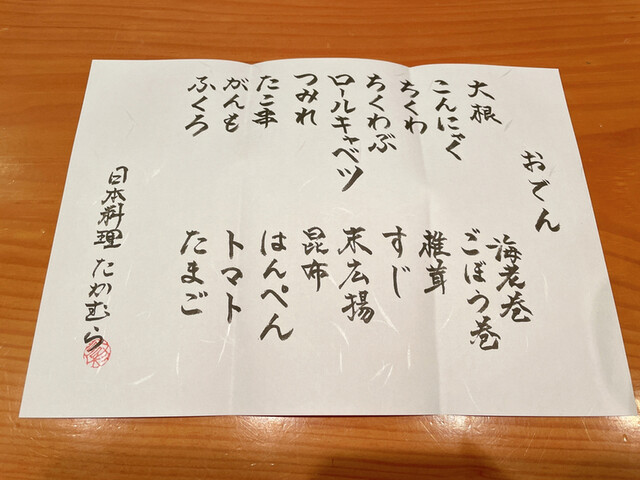 おでん
大根
こんにゃく
ちくわ
ちくわぶ
ロールキャベツ
つみれ
たこ串
がんも
ふくろ
海老巻
ごぼう巻
椎茸
すじ
末広揚
昆布
はんぺん
トマト
たまご
日本料理 たかむら